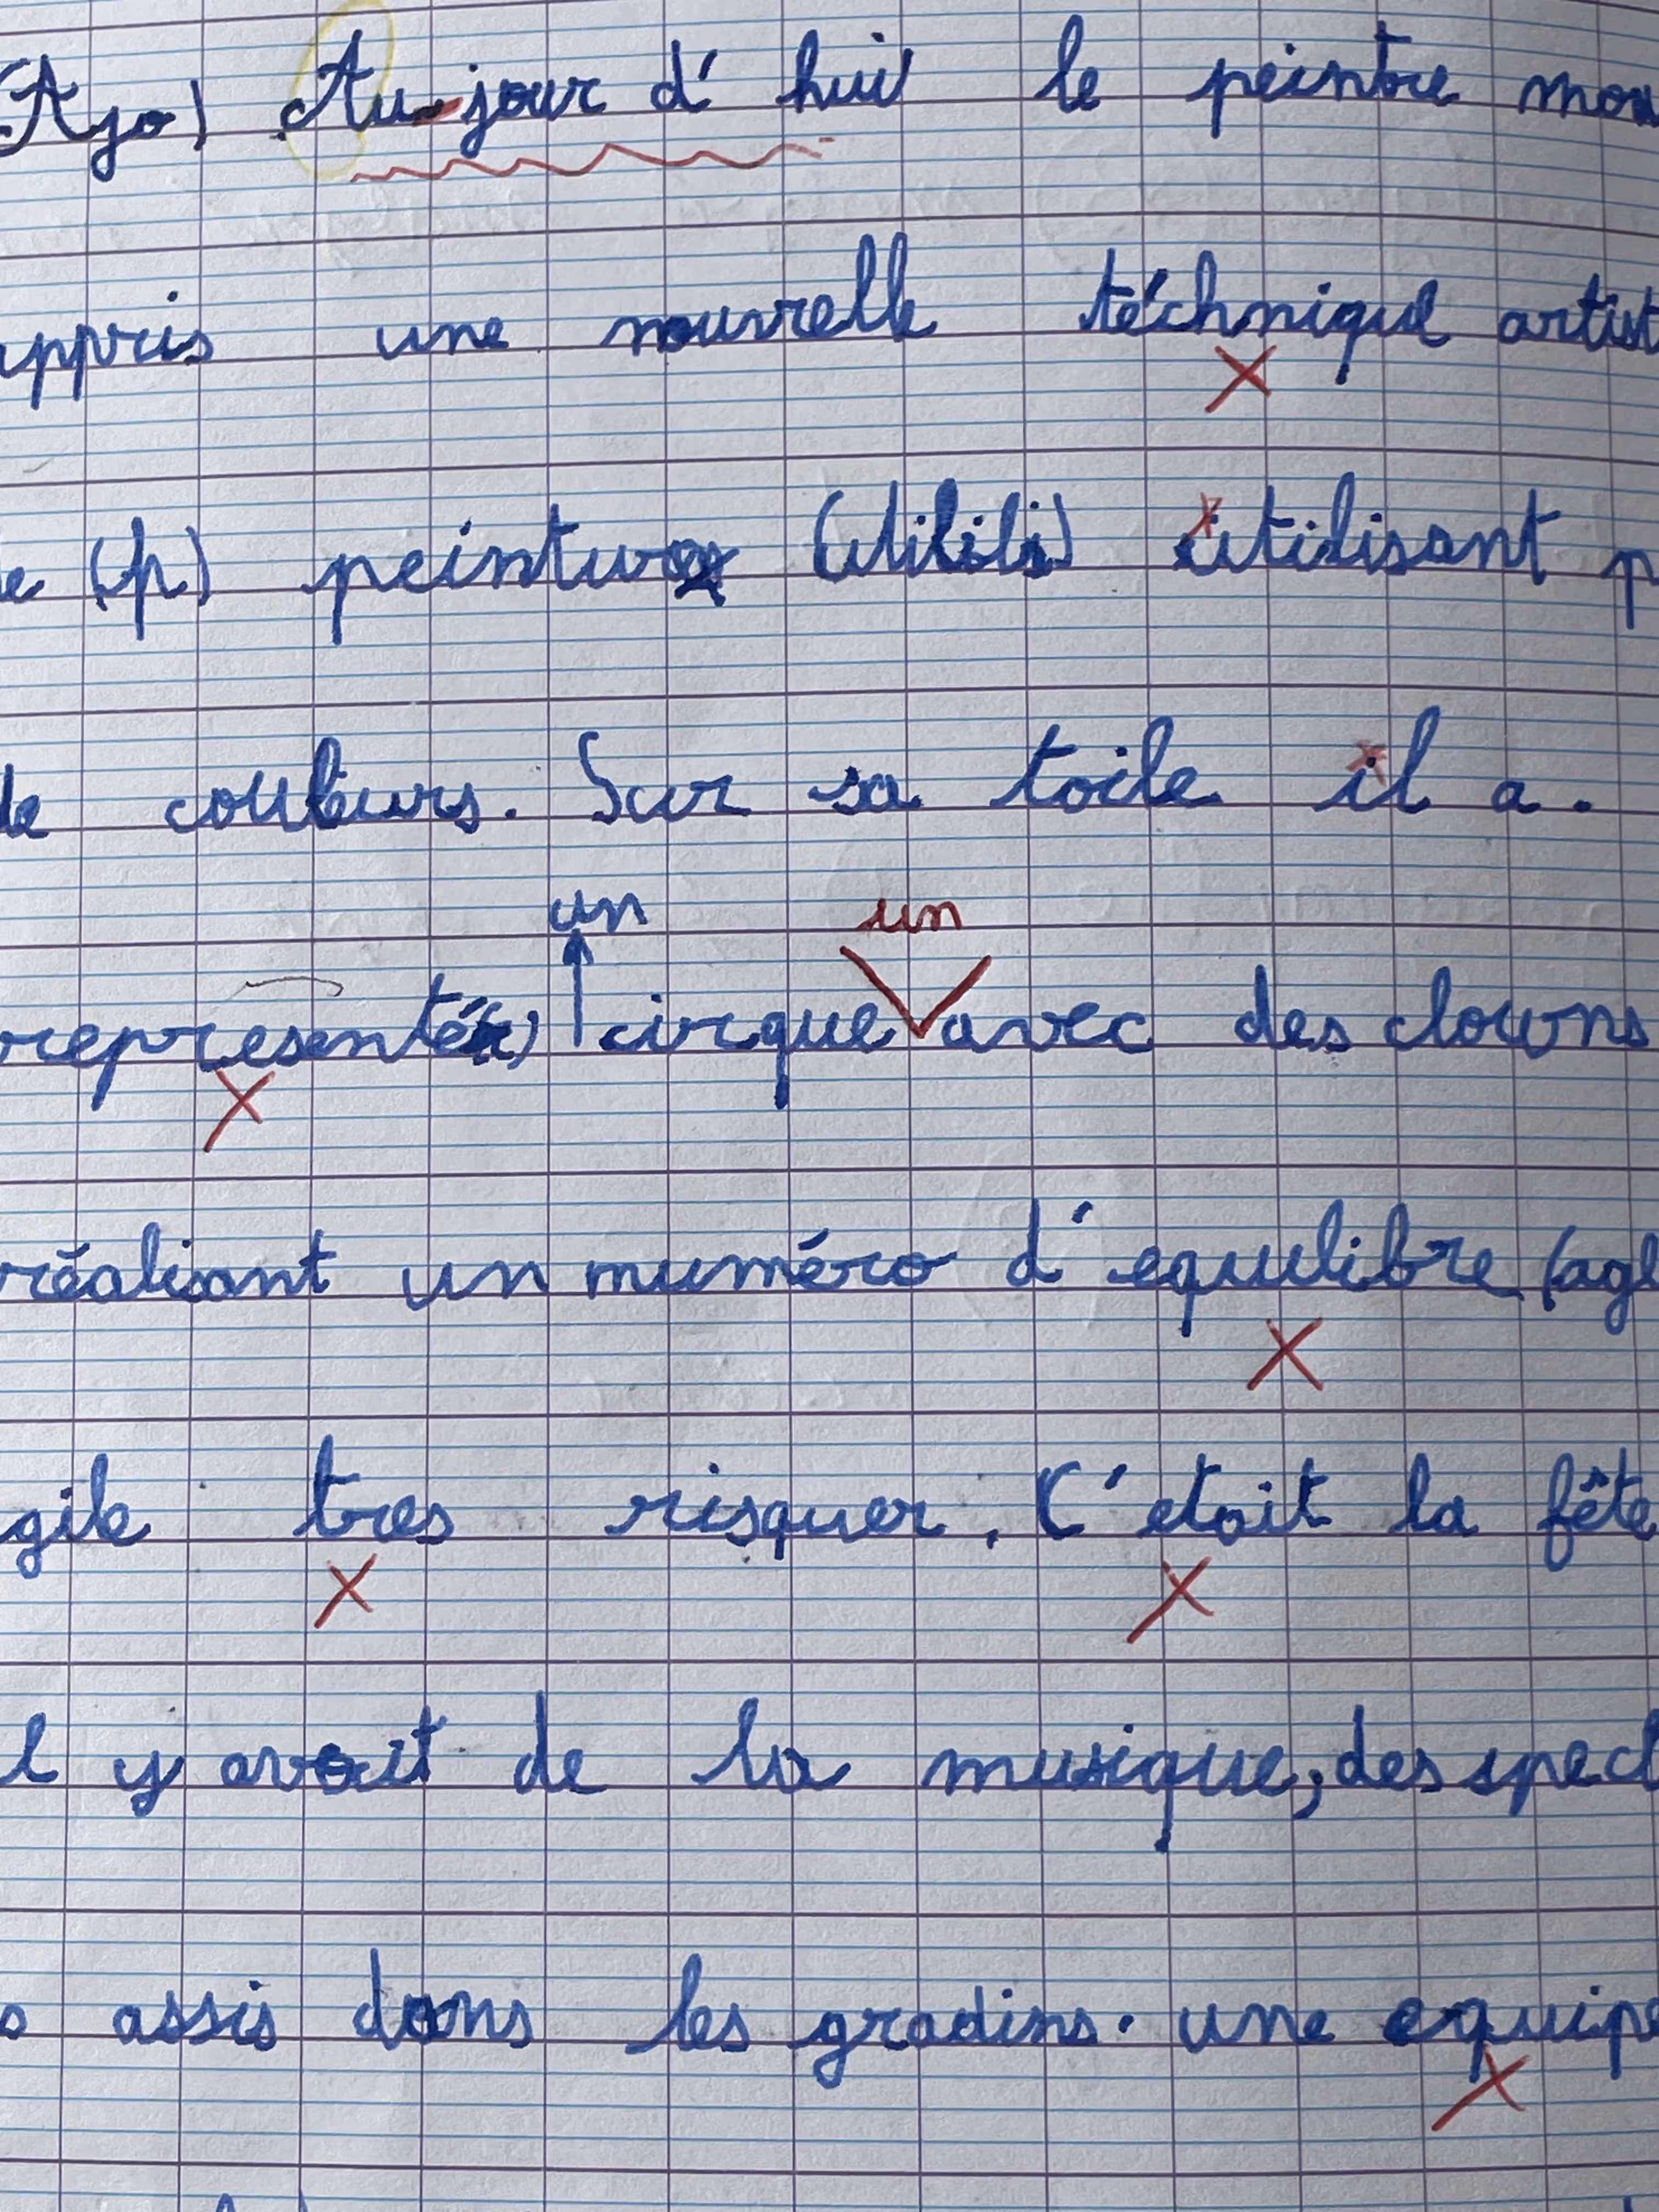 (Ajo) Au-jour d' hui le peintre mon
appris une nouvelle téchnique artist
le (p) peinture utilisant p
de couleurs. Sur sa toile il a.
un un
representé cirque avec des clowns
réalisant un numéro d' equilibre (agl
gile tres risquer. C'etait la fête
l y avait de la musique, des spect
assis dans les gradins. une equipe